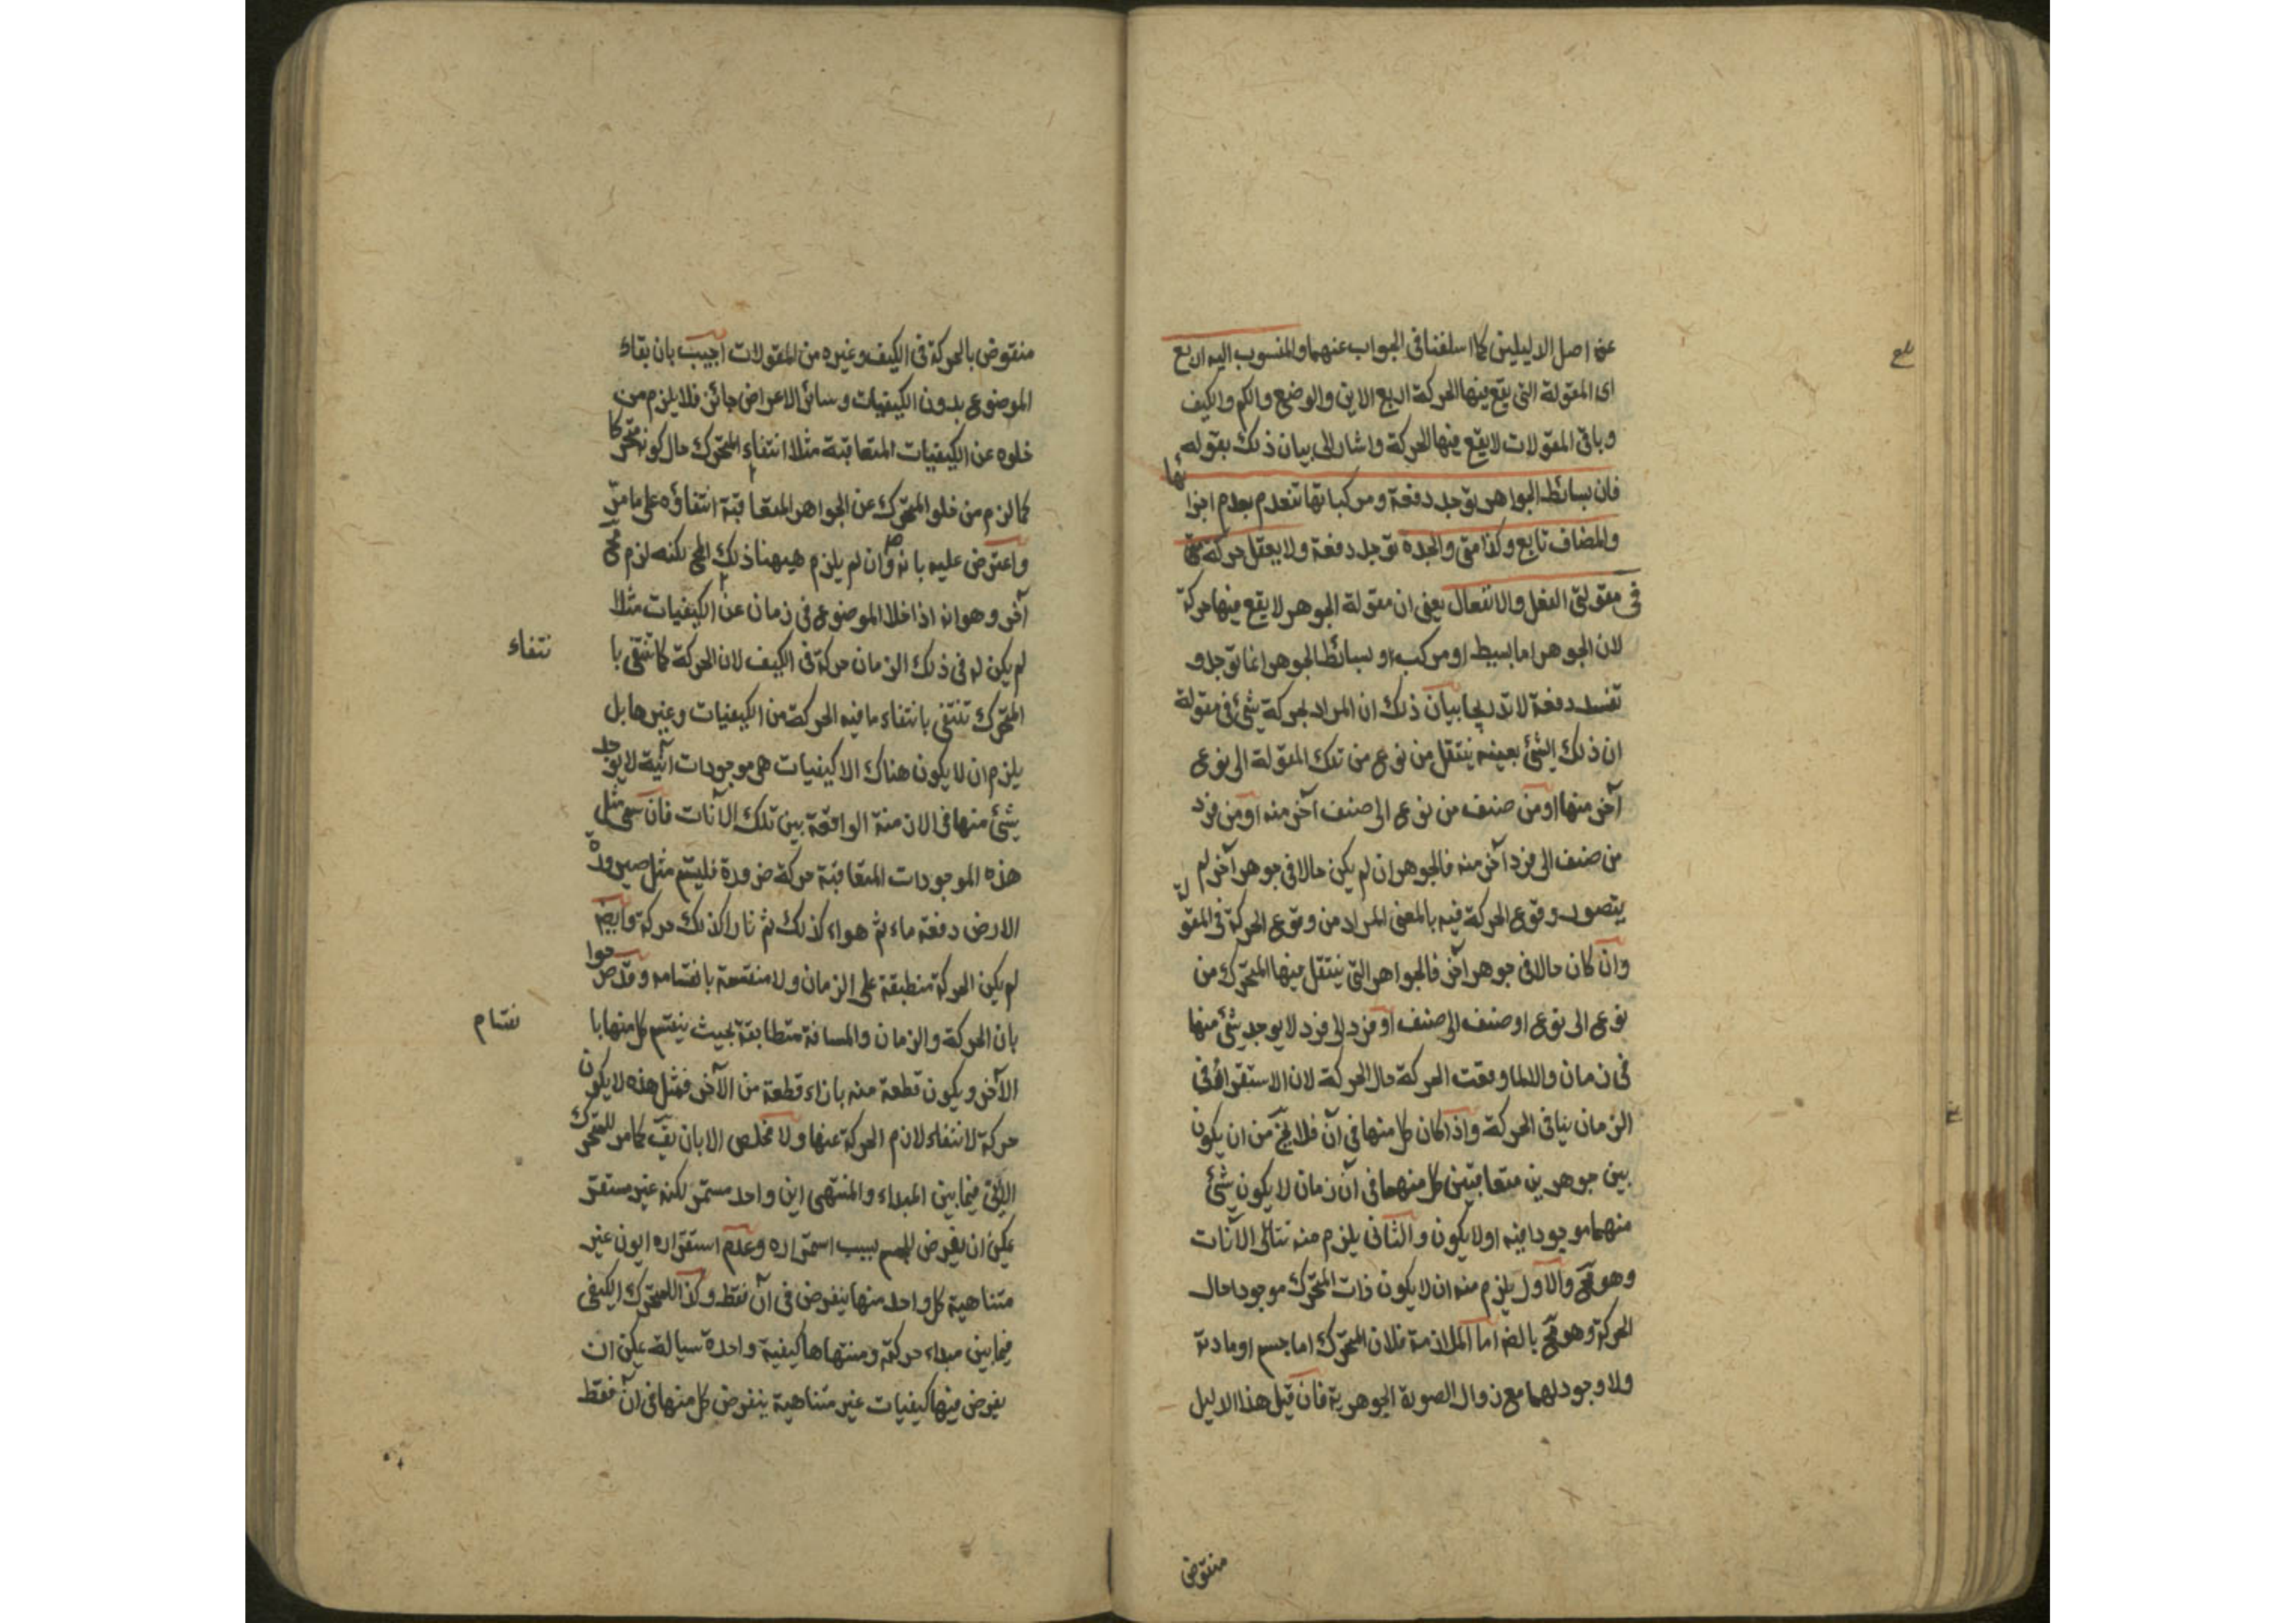 عن اصل الدليلين كما اسلفنا فى الجواب عنهما والمنسوب اليه اربع
اى المقولة التى يقع فيها الحركة اربع الاين والوضع والكم والكيف
وباقى المقولات لا يقع فيها الحركة واشار الى بيان ذلك بقوله
فان بسائط الجواهر توجد دفعة ومركباتها تنعدم بعدم اجزائها
والمضاف تابع وكذا متى والجدة توجد دفعة ولا يعقل حركة
فى مقولتى الفعل والانفعال يعنى ان مقولة الجوهر لا يقع فيها حركة
لان الجوهر اما بسيط او مركب وبسائط الجوهر انما توجد و
تفسد دفعة لا تدريجا بيان ذلك ان المراد بحركة شئ فى مقولة
ان ذلك الشئ بعينه ينتقل من نوع من تلك المقولة الى نوع
آخر منها او من صنف من نوع الى صنف آخر منه او من فرد
من صنف الى فرد آخر منه فالجوهر ان لم يكن حالا فى جوهر آخر لم
يتصور وقوع الحركة فيه بالمعنى المراد من وقوع الحركة فى المقولة
وان كان حالا فى جوهر آخر فالجواهر التى ينتقل فيها المتحرك من
نوع الى نوع او صنف الى صنف او فرد الى فرد لا يوجد شئ منها
فى زمان والا لما وقعت الحركة حال الحركة لان الاستقرار فى
الزمان ينافى الحركة واذا كان كل منها فى آن فلا يخ من ان يكون
بين جوهرين متعاقبين كل منهما فى آن زمان لا يكون شئ
منهما موجودا فيه او لا يكون والثانى يلزم منه تتالى الآنات
وهو مح والاول يلزم منه ان لا يكون ذات المتحرك موجودا حال
الحركة وهو مح بالضه اما الملازمة فلان المتحرك اما جسم او مادته
ولا وجود لهما مع زوال الصورة الجوهرية فان قيل هذا الدليل
منقوض
منقوض بالحركة فى الكيف وغيره من المقولات اجيب بان بقاء
الموضوع بدون الكيفيات وسائر الاعراض جائز فلا يلزم من
خلوه عن الكيفيات المتعاقبة مثلا انتفاء المتحرك حال كونه متحركا
كما لزم من خلو المتحرك عن الجواهر المتعاقبة انتفاؤه على ما مر
واعترض عليه بانه وان لم يلزم هيهنا ذلك المح لكنه لزم مح
آخر وهو انه اذا خلا الموضوع فى زمان عن الكيفيات مثلا
لم يكن له فى ذلك الزمان حركة فى الكيف لان الحركة كما تنتفى با
نتفاء
المتحرك تنتفى بانتفاء ما فيه الحركة من الكيفيات وغيرها بل
يلزم ان لا يكون هناك الا كيفيات هى موجودات آنية لا يوجد
شئ منها فى الازمنة الواقعة بين تلك الآنات فان سمى مثل
هذه الموجودات المتعاقبة حركة ضرورة فليسم مثل صيرورة
الارض دفعة ماء ثم هواء كذلك ثم نارا كذلك حركة وايضا
لم يكن الحركة منطبقة على الزمان ولا منقسمة بانقسامه وقد صرحوا
بان الحركة والزمان والمسافة متطابقة بحيث ينقسم كل منها با
نقسام
الآخر ويكون قطعة منه بازاء قطعة من الآخر فمثل هذه لا يكون
حركة لانتفاء لازم الحركة عنها ولا مخلص الا بان يقّ كما مر للمتحرك
الاينى فيما بين المبداء والمنتهى اين واحد مستمر لكنه غير مستقر
يمكن ان يفرض للجسم بسبب استمراره وعدم استقراره ايون غير
متناهية كل واحد منها يفرض فى آن فقط وكذا للمتحرك الكيفى
فيما بين مبداء حركته ومنتهاها كيفية واحدة سيالة يمكن ان
يفرض فيها كيفيات غير متناهية ينفرض كل منها فى آن فقط